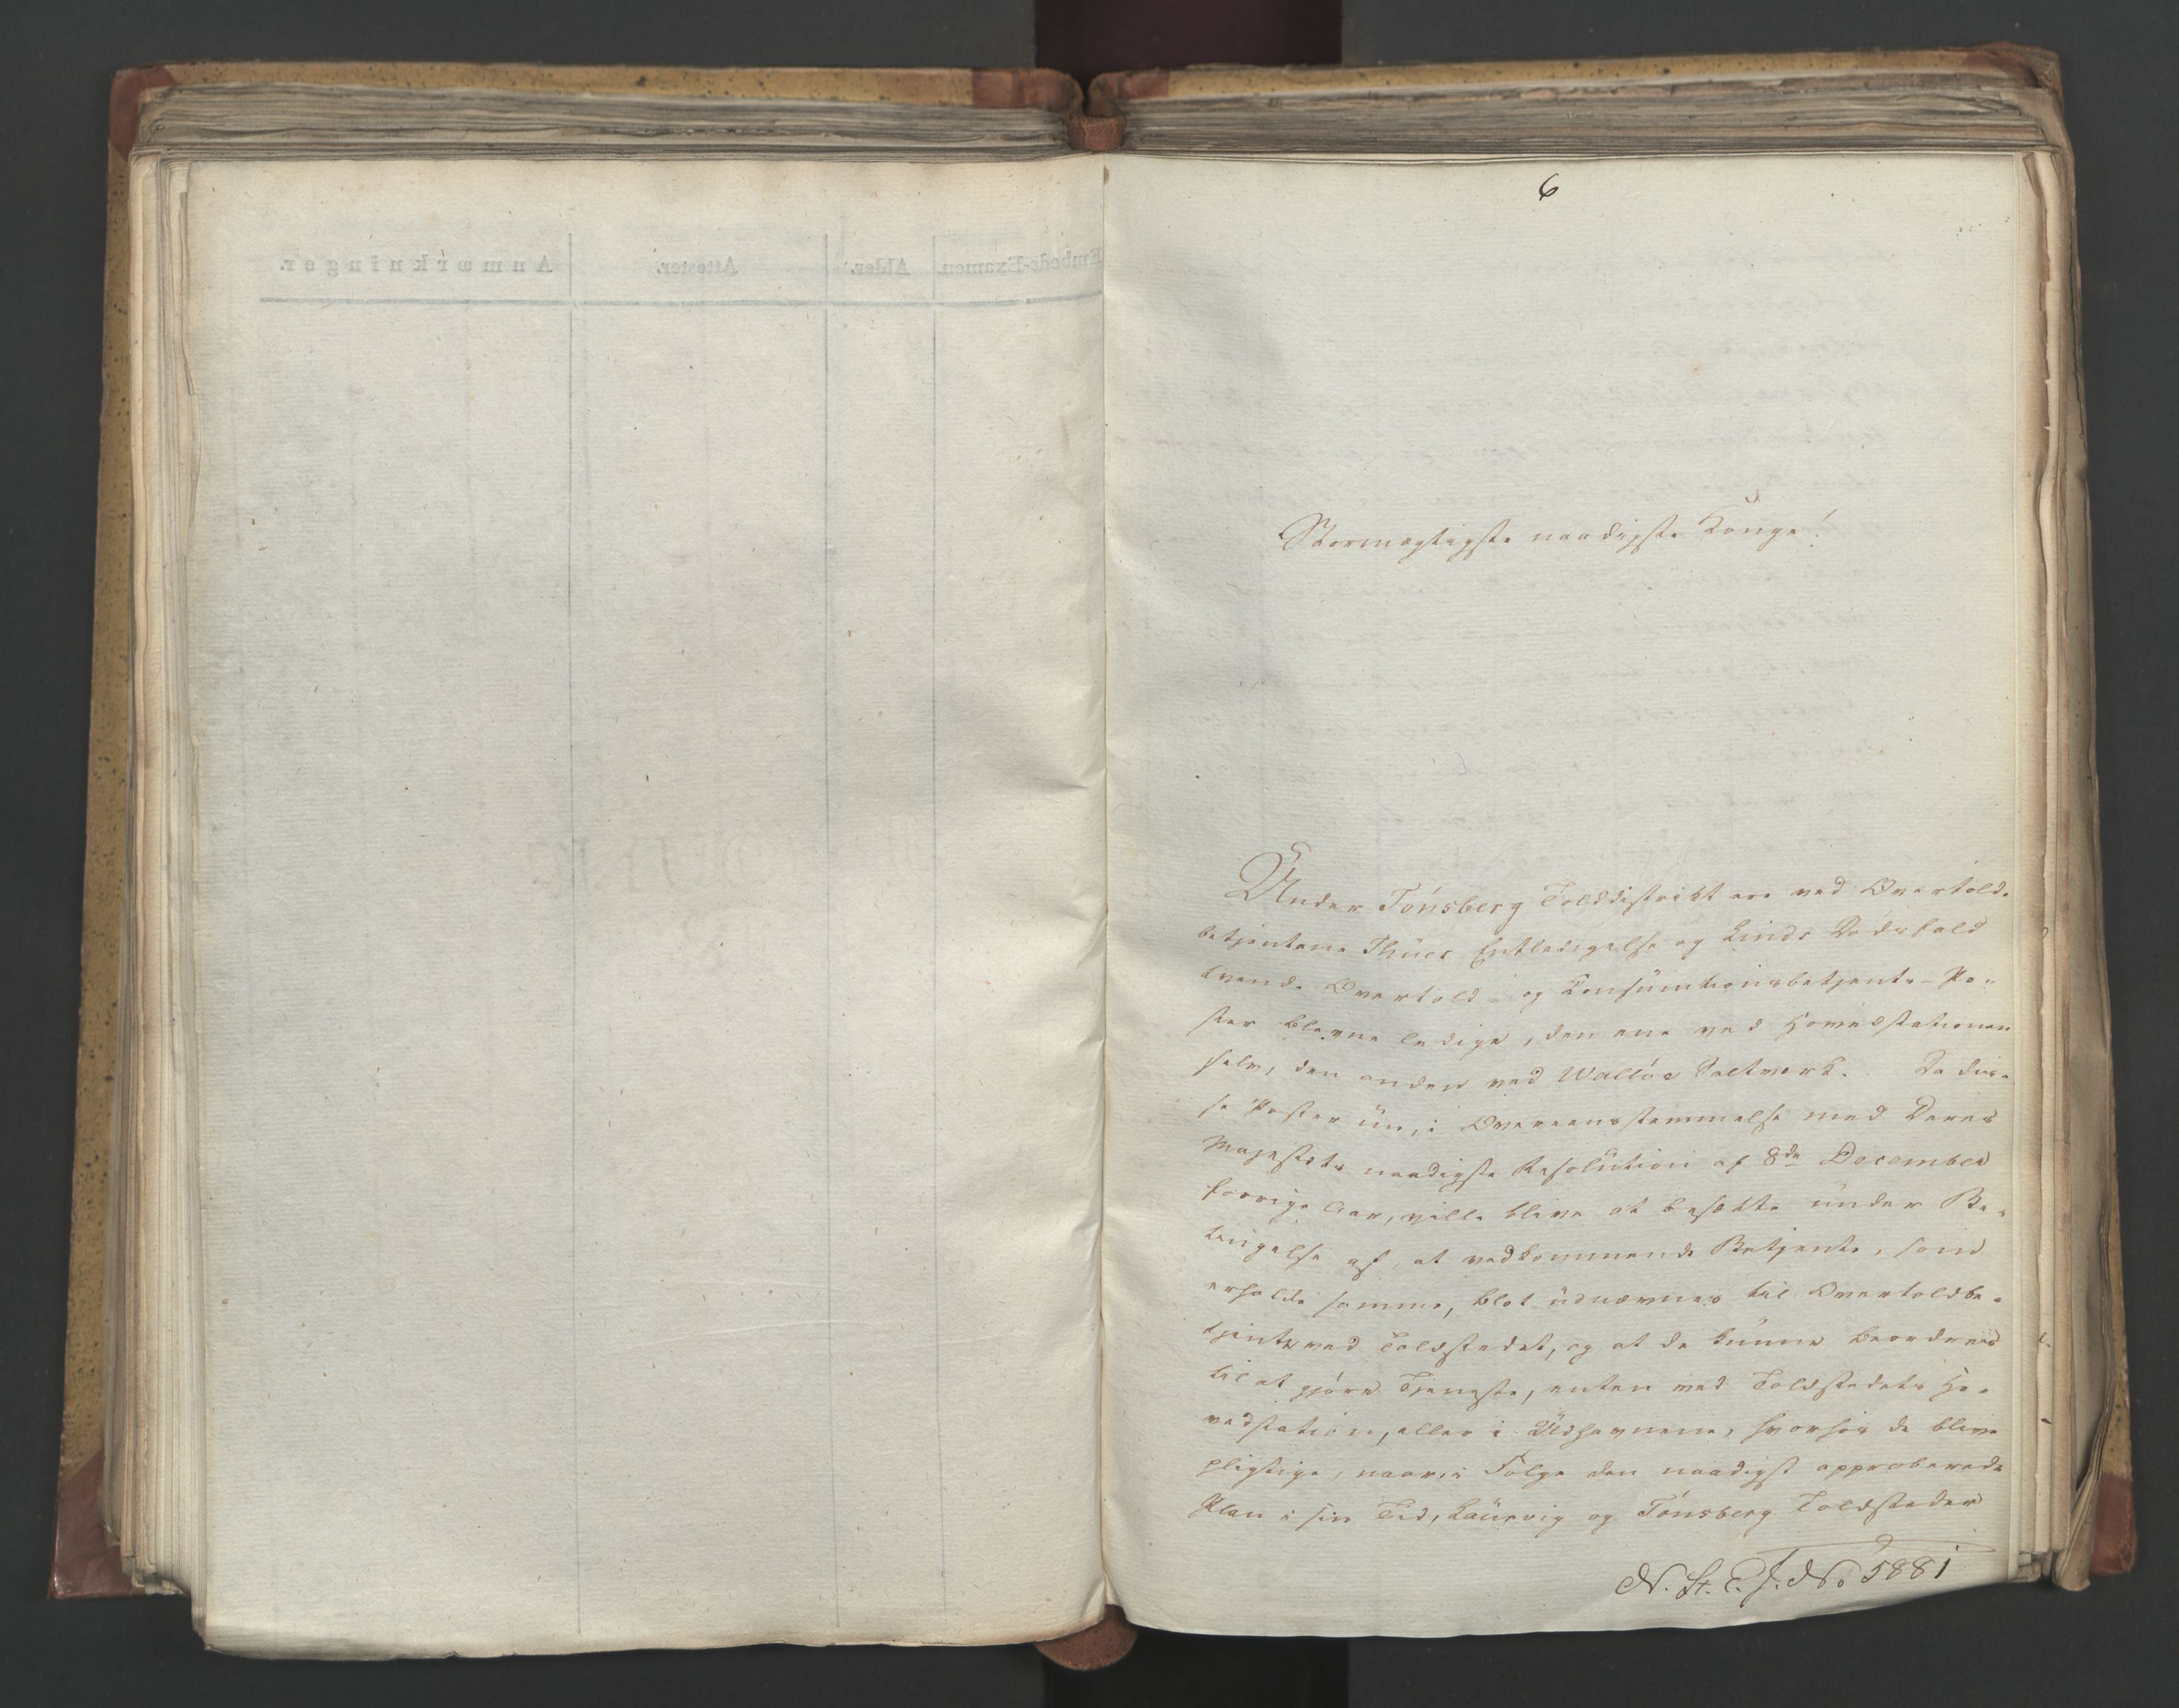 Embeds-Examen. Alder. Attester. Anmærkninger.
6
Stormægtigste naadigste Konge!
Under Tønsberg Tolddistrikt ere ved Overtold-
betjentene Thues Entledigelse og Linds Dødsfald
tvende Overtold- og Consumtionsbetjente-Po-
ster blevne ledige, den ene ved Hovedstationen
selv, den anden ved Walløe Saltverk. Da dis-
se Poster nu, i Overeensstemmelse med Deres
Majestæts naadigste Resolution af 8de December
forrige Aar, ville blive at besætte under Be-
tingelse af, at vedkommende Betjente, som
erholde samme, blot udnævnes til Overtoldbe-
tjente ved Toldstedet, og at de kunne beordres
til at gjøre Tjeneste, enten ved Toldstedets Ho-
vedstation, eller i Udhavnene, hvorhos de blive
pligtige, naar, i Følge den naadigst approberede
Plan i sin Tid, Laurvig og Tønsberg Toldsteder
N. St. E. J. No 5881